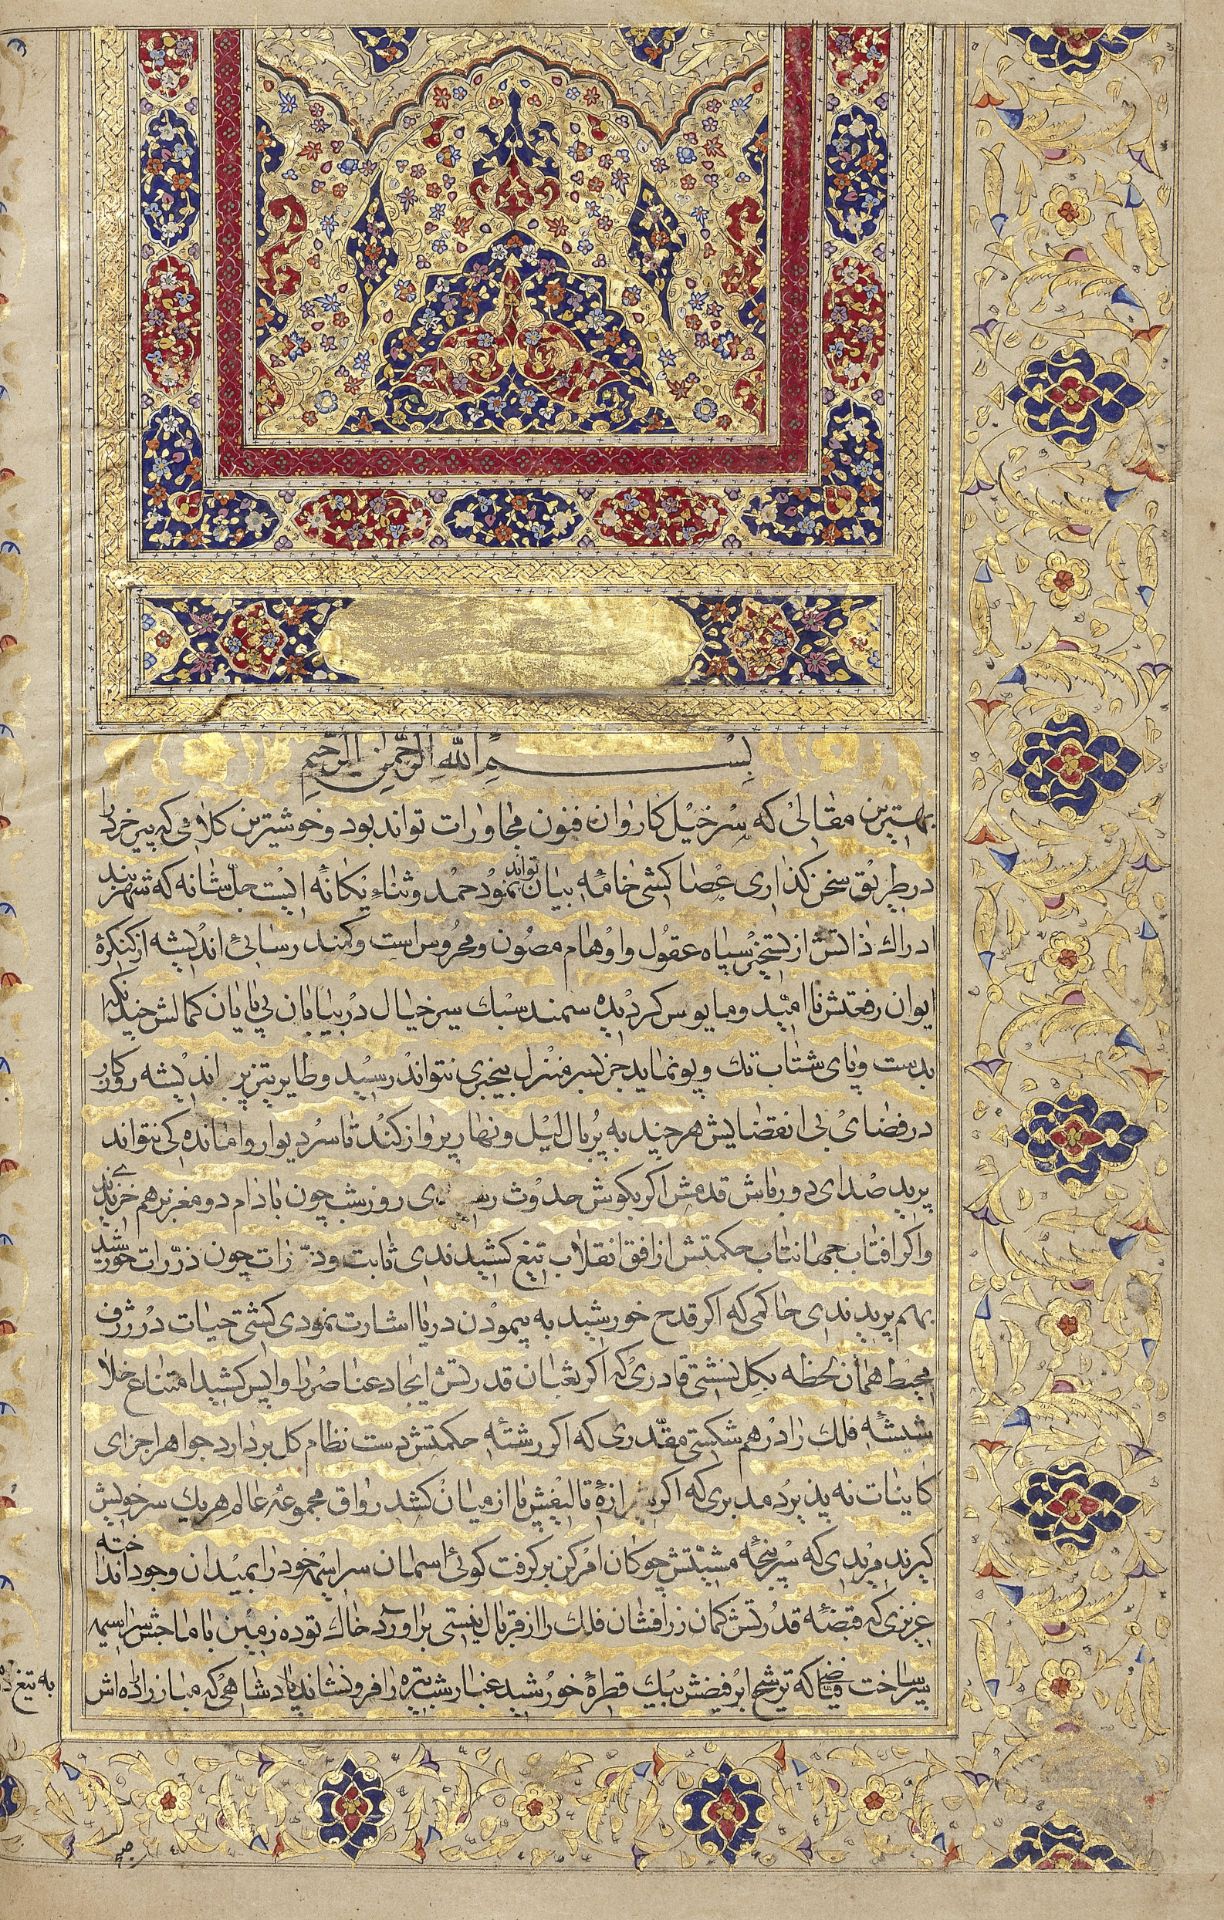 بسم الله الرحمن الرحیم
بهترین مقالی که سر خیل کاروان فنون محاورات تواند بود و خوشترین کلامی که پیر خرد را
در طریق سخن کذاری عصا کشی خامه بیان تواند نمود حمد و ثناء یکانه ایست جل شانه که شهر بند
ادراك ذاتش از تسخیر سپاه عقول و اوهام مصون و محروس است و کمند رسائی اندیشه از کنکرهٔ
ایوان رفعتش ناامید و مایوس کردیده سمند سبك سیر خیال در بیابان بی پایان کمالش چندانکه
بدست و پای شتاب تك و پو نماید جز بسر منزل بیخبری نتواند رسید و طایر تیز پر اندیشه روزکار
در فضای بی انقضایش هر چند به پر بال لیل و نهار پرواز کند تا سر دیوار واماندکی نتواند
پرید صدای دورباش قدمش اکر بکوش حدوث رسیدی روز شب چون بادام دو مغز بر هم خزیدندی
و اکر افتاب جهانتاب حکمتش از افق انقلاب تیغ کشیدندی ثابت و ذرات چون ذرات خورشید
بهم پریدندی حاکمی که اکر قدح خورشید به پیمودن دریا اشارت نمودی کشتی حیات در ژرف
محیط همان لحظه بکل نشستی قادری که اکر ثعبان قدرتش ایجاد عناصر را واپس کشید امتناع خلا
شیشه فلك را درهم شکستی مقدری که اکر رشته حکمتش دست نظام کل بردارد جواهر اجزای
کاینات نه پذیرد مدبری که اکر شیرازهٔ تالیفش پا از میان کشد رواق مجموعه عالم هر یك سر خویش
کیرند مریدی که سر پنجه مشیتش چوکان امر کن بر کرفت کوی اسمان سراسیمه خود را بمیدان وجود انداخته
عزیزی که قبضه قدرتش کمان زرافشان فلك را از قربال نیستی بر اورد خاك توده زمین با ماجش سراسیمه
سر ساخت فیاضی که ترشح ابر فیضش بیك قطرهٔ خورشید غبار شب تیره را فرو نشاند پادشاهی که مبارزاده اش
به تیغ